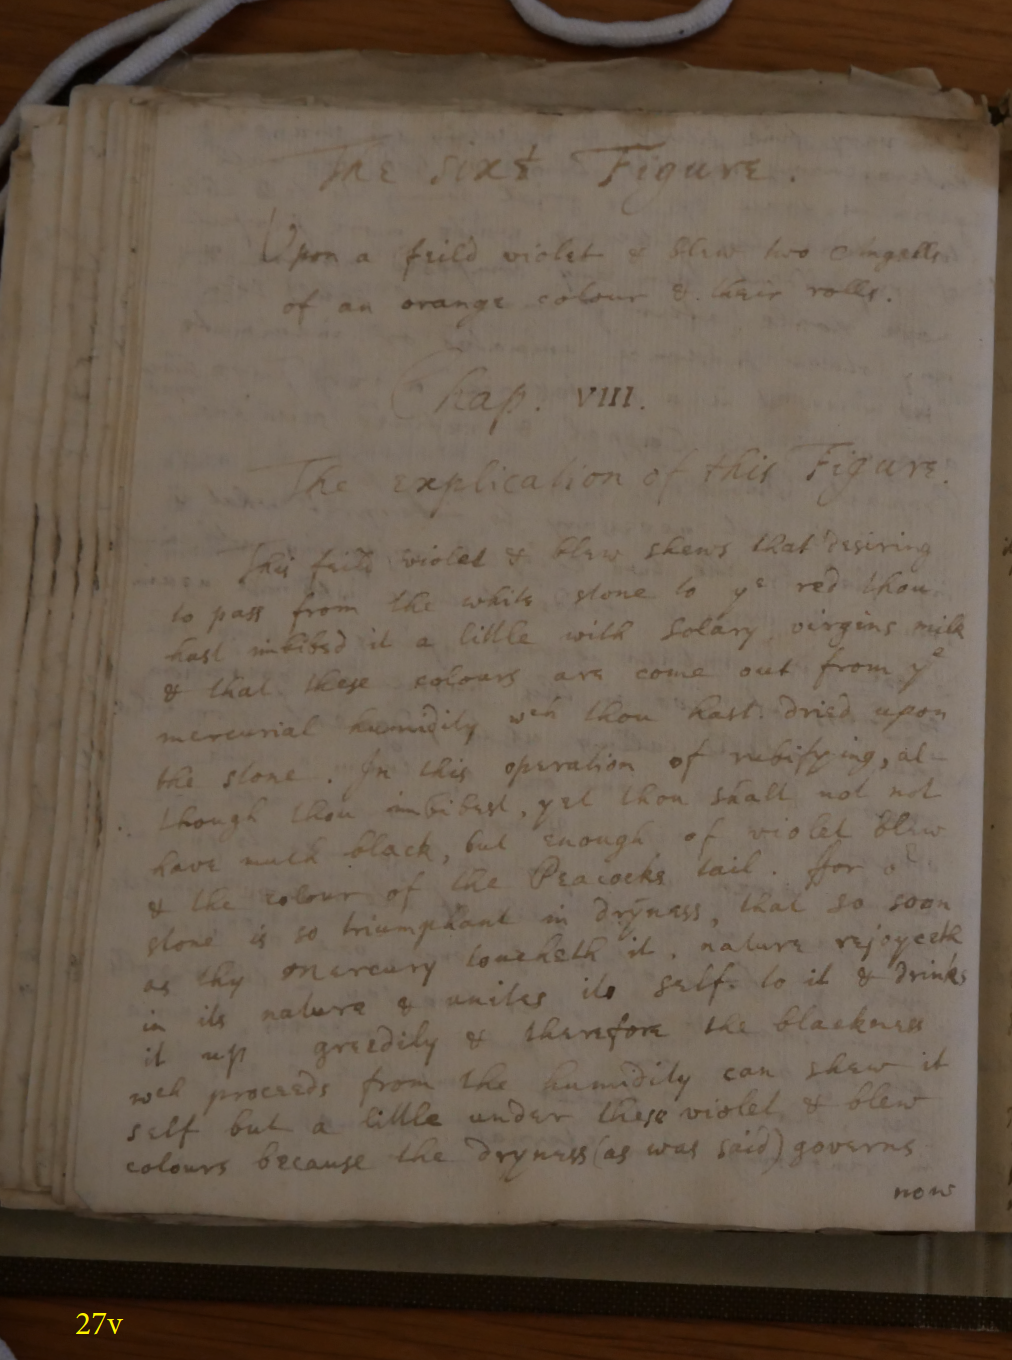 The sixt Figure.
Upon a feild violet & blew two Angells
of an orange colour & their rolls.
Chap. VIII.
The explication of this Figure.
This feild violet & blew shews that desiring
to pass from the white stone to yᵉ red thou
hast imbibed it a little with Solary virgins milk
& that these colours are come out from yᵉ
mercurial humidity wᶜʰ thou hast dried upon
the stone. In this operation of rubifying, al-
though thou imbibest, yet thou shalt not not
have much black, but enough of violet blew
& the colour of the Peacocks tail. ffor oʳ
stone is so triumphant in dryness, that so soon
as thy Mercury toucheth it, nature rejoyceth
in its nature & unites its self to it & drinks
it up greedily & therefore the blackness
wch proceeds from the humidity can shew it
self but a little under these violet & blew
colours because the dryness (as was said) governs
now
27v